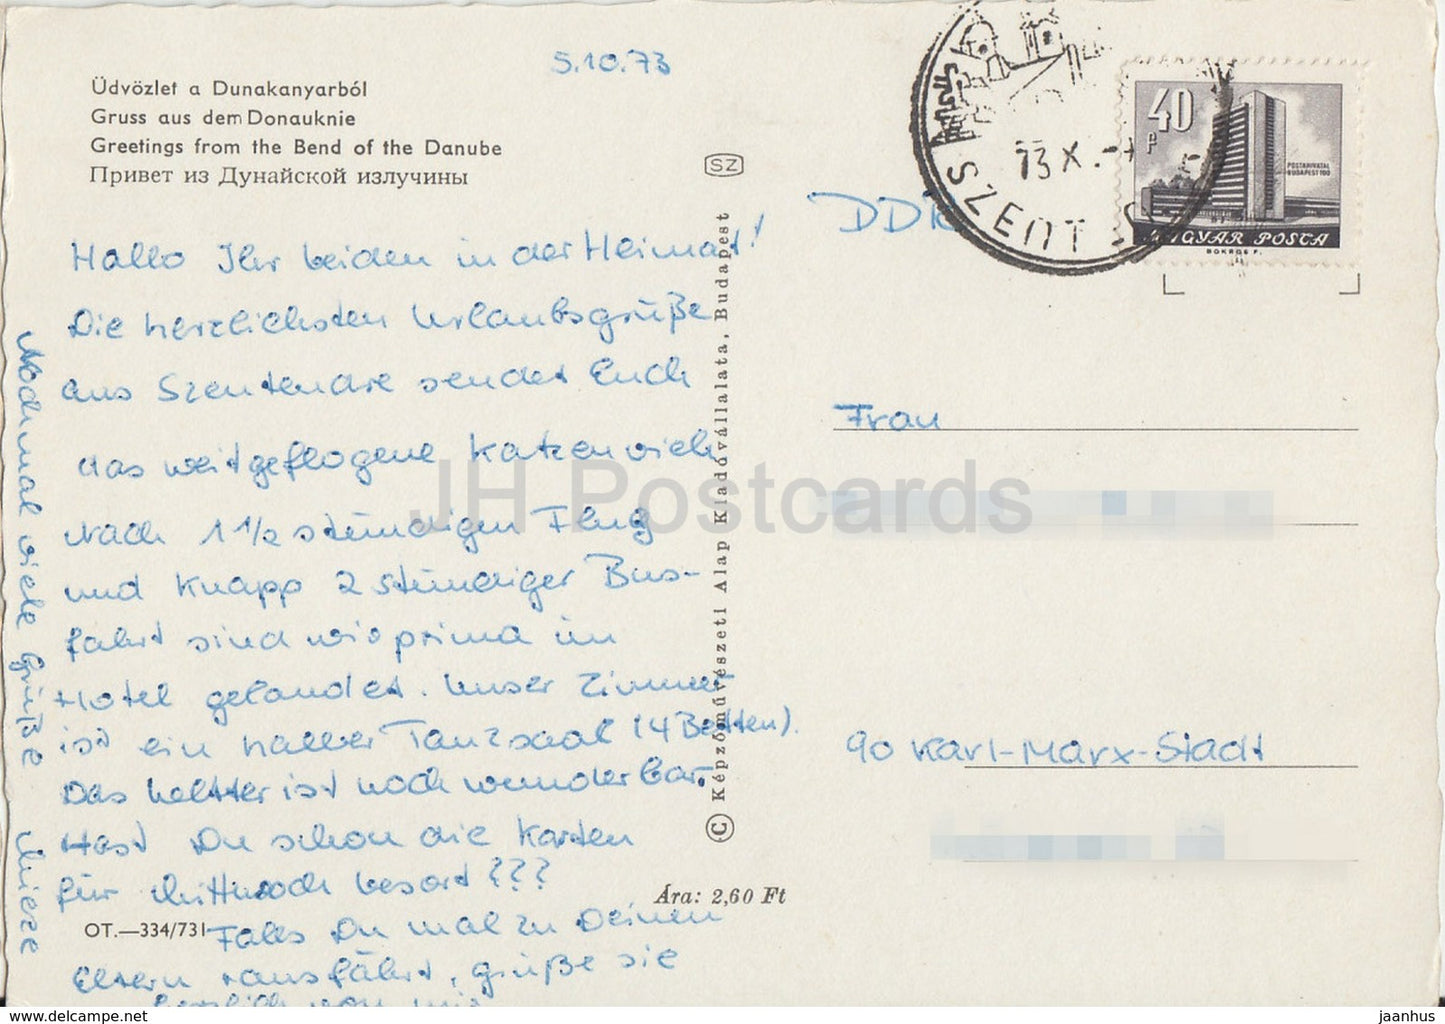 5.10.73
Üdvözlet a Dunakanyarból
Gruss aus dem Donauknie
Greetings from the Bend of the Danube
Привет из Дунайской излучины
Hallo Ihr beiden in der Heimat!
Die herzlichsten Urlaubsgrüße
aus Szentendre sendet Euch
das weitgeflogene Katzenvieh
Nach 1 1/2 stündigen Flug
und knapp 2 stündiger Bus-
fahrt sind wir prima im
Hotel gelandet. Unser Zimmer
ist ein halber Tanzsaal (4 Betten).
Das Wetter ist noch wunderbar.
Hast Du schon die Karten
für Mittwoch besorgt???
Falls Du mal zu Deinen
Eltern rausfährst, grüße sie
herzlich von mir
Nochmal viele Grüße Mieze
OT.—334/731
SZ
Képzőművészeti Alap Kiadóvállalata, Budapest
Ára: 2,60 Ft
SZENT
73 X.
40 f
POSTAHIVATAL
BUDAPEST 100
MAGYAR POSTA
BOKROS F.
DDR
Frau
90 Karl-Marx-Stadt
JH Postcards
www.delcampe.net
jaanhus